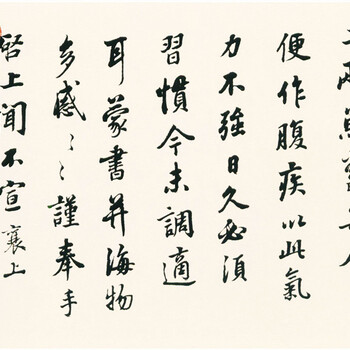 便作腹疾以此氣
力不強日久必須
習慣今未調適
耳蒙書并海物
多感〻〻謹奉手
啓上聞不宣襄上